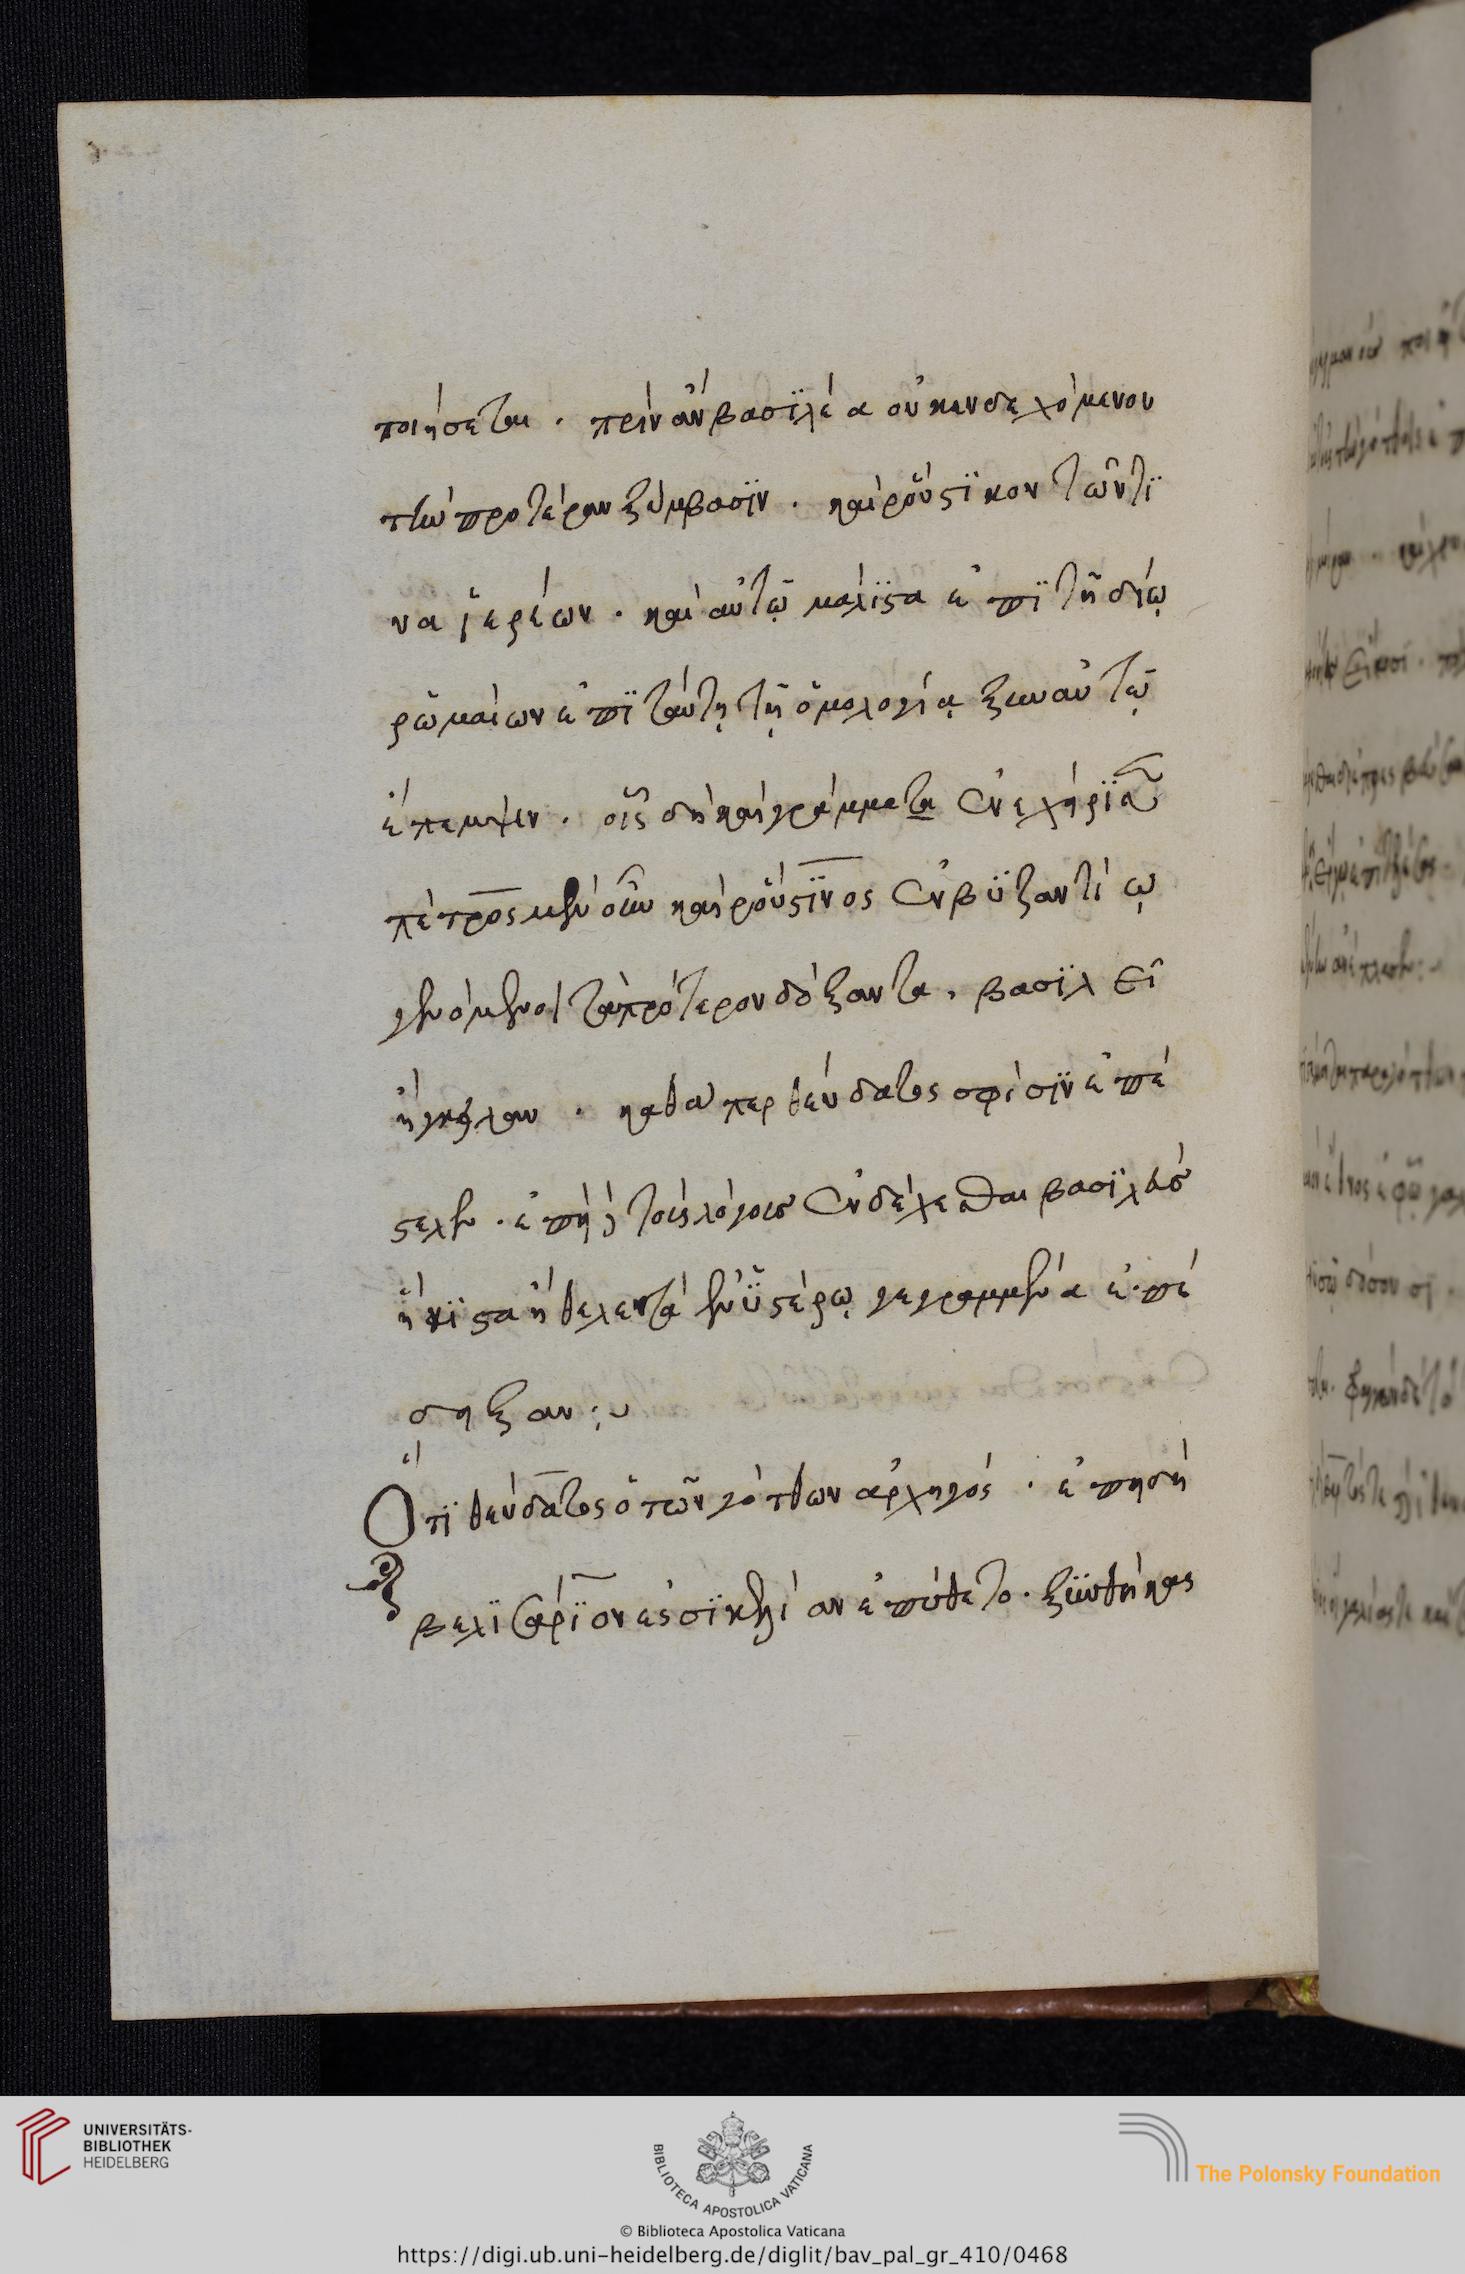 ποιήσεται · πρὶν ἂν βασϊλέα οὐκ ενδεχόμενον
τὴν προτέραν ξύμβασϊν · καὶ ῥούστϊκον τῶν τϊ
να ϊερέων · καὶ αὐτῷ μάλϊστα ἐπῒ τῆ δίω
ῥωμαίων ἐπῒ ταύτῃ τῇ ὁμολογίᾳ ξὺν αὐτῷ
ἔπεμψεν · οἷς δὴ καὶ γράμματα ἐνεχήρϊσε
πέτρος μὲν οὖν καὶ ῥούστϊνος ἐν βϋζαντίῳ
γενόμενοι τὰ πρότερον δόξαντα · βασϊλεῖ
ήγγειλαν · καθάπερ θεύδατος σφίσϊν ἐπέ
στελλεν · ἐπὴ δὲ τοὺς λόγους ἐνδέχεσθαι βασϊλεὺς
ήκϊστα ήθελε τὰ ἐν ϋστέρω γεγραμμένα ἐπέ
δηξαν :
Ὅτϊ θεύδατος ὁ τῶν γότθων ἀρχηγός · ἐπηδὴ
βελϊσάρϊον ες σϊκελίαν ἐπύθετο · ξϋνθήκας
UNIVERSITÄTS-
BIBLIOTHEK
HEIDELBERG
BIBLIOTECA APOSTOLICA VATICANA
The Polonsky Foundation
© Biblioteca Apostolica Vaticana
https://digi.ub.uni-heidelberg.de/diglit/bav_pal_gr_410/0468